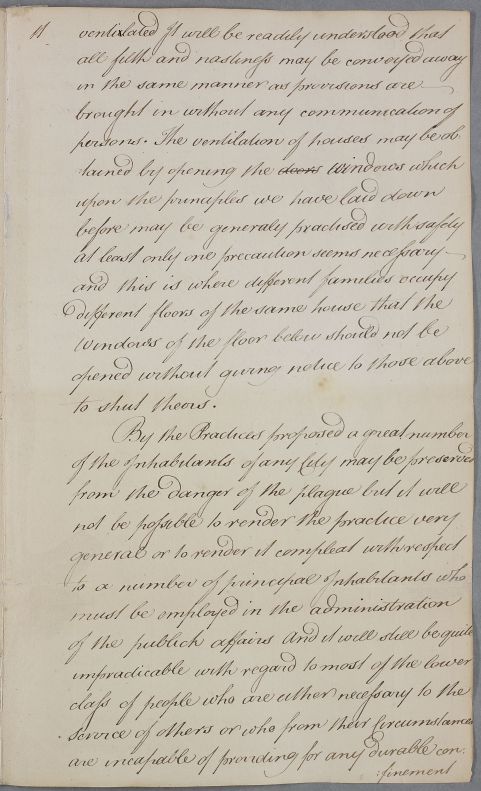 11
ventilated It will be readily understood that
all filth and nastiness may be conveyed away
in the same manner as provisions are
brought in without any communication of
persons. The ventilation of houses may be ob-
tained by opening the doors windows which
upon the principles we have laid down
before may be generaly practised with safety
at least only one precaution seems necessary
and this is where different families occupy
different floors of the same house that the
windows of the floor below should not be
opened without giving notice to those above
to shut theirs.
By the Practices proposed a great number
of the Inhabitants of any City may be preserved
from the danger of the plague but it will
not be possible to render the practice very
general or to render it compleat with respect
to a number of principal Inhabitants who
must be employed in the administration
of the publick affairs And it will still be quite
impradicable with regard to most of the lower
class of people who are either necessary to the
service of others or who from their circumstances
are incapable of providing for any durable con:
:finement